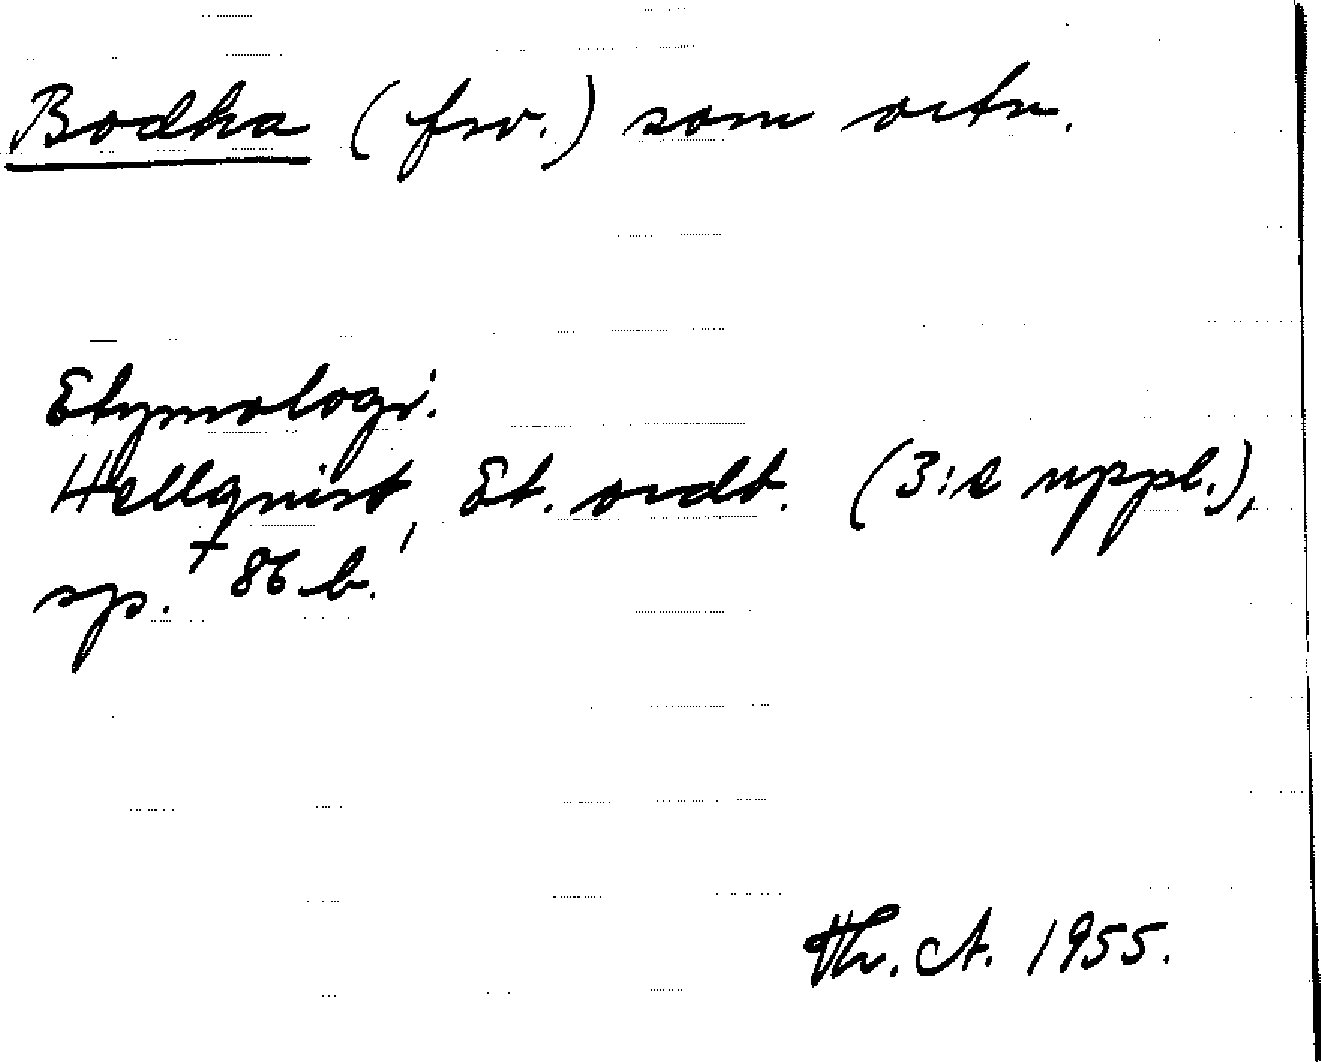 Bodha (fsv.) som ortn.
Etymologi.
Hellquist, Et. ordb. (3:e uppl.),
sp. 86 b.
Th. A. 1955.